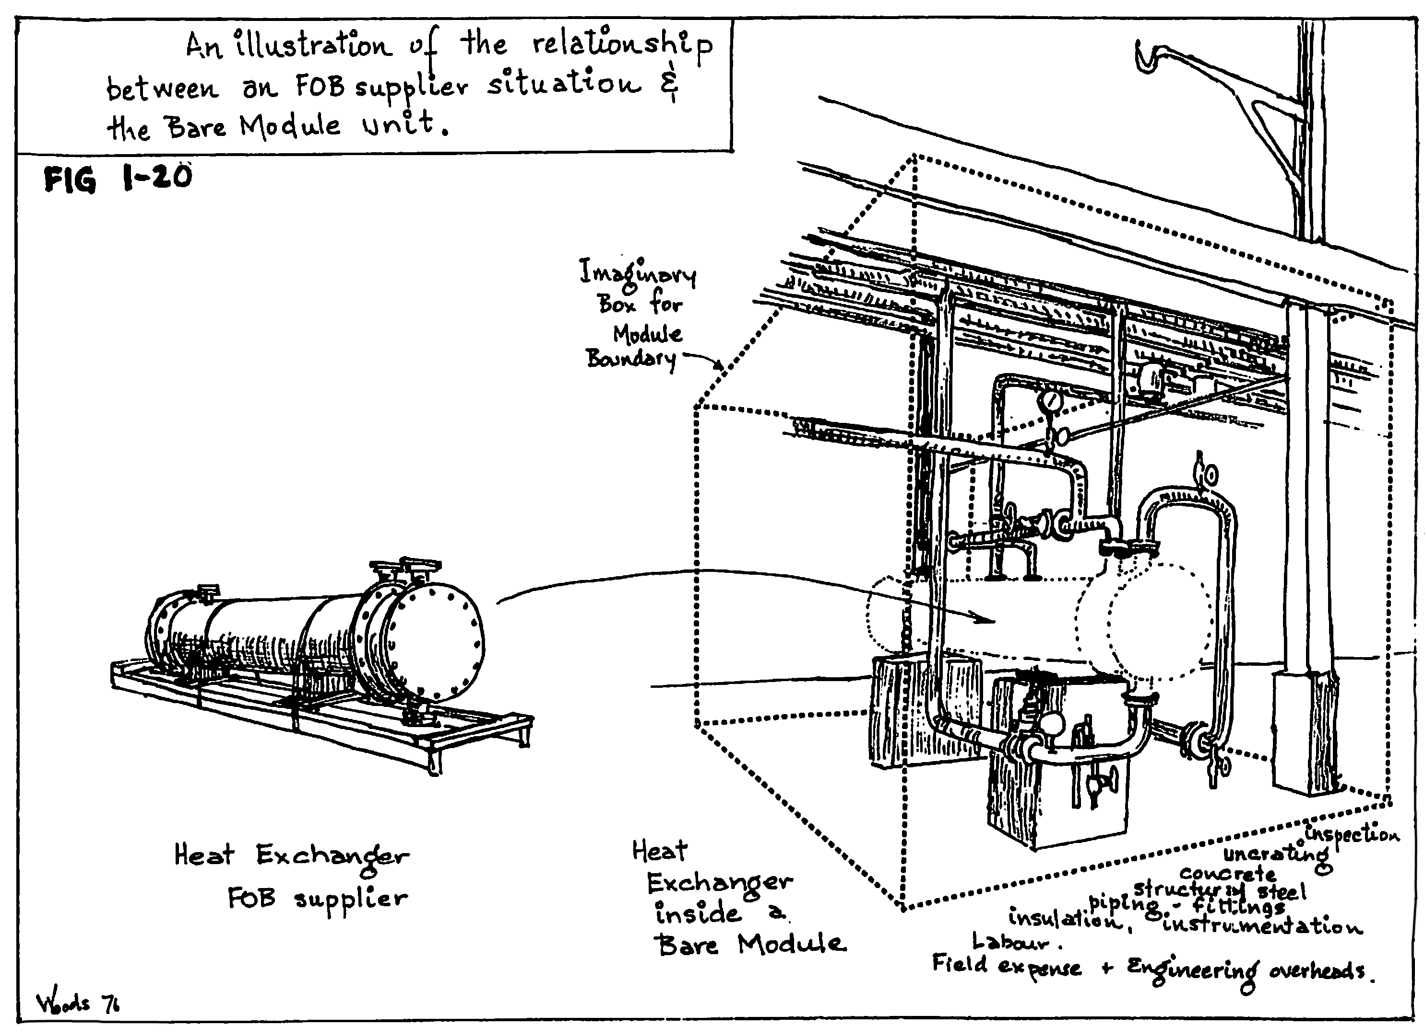 An illustration of the relationship
between an FOB supplier situation &
the Bare Module unit.
FIG 1-20
Imaginary
Box for
Module
Boundary
Heat Exchanger
FOB supplier
Heat
Exchanger
inside a
Bare Module
inspection
uncrating
concrete
structural steel
piping - fittings
insulation, instrumentation
Labour.
Field expense + Engineering overheads.
Woods 76